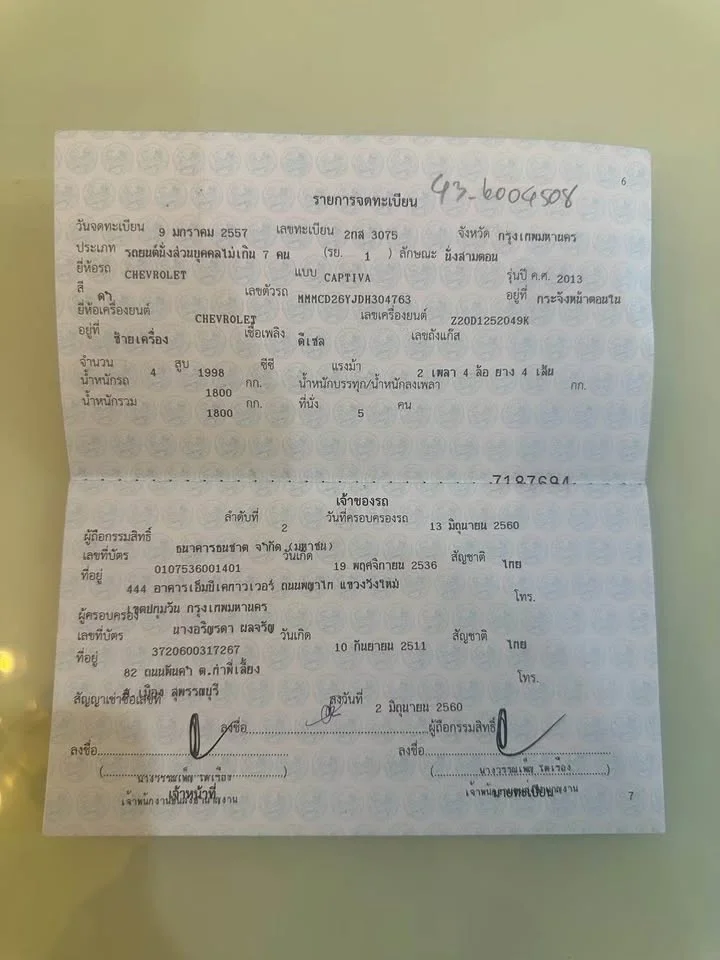 6
รายการจดทะเบียน 43-6004508
วันจดทะเบียน 9 มกราคม 2557 เลขทะเบียน 2กส 3075 จังหวัด กรุงเทพมหานคร
ประเภท รถยนต์นั่งส่วนบุคคลไม่เกิน 7 คน (รย. 1 ) ลักษณะ นั่งสามตอน
ยี่ห้อรถ CHEVROLET แบบ CAPTIVA รุ่นปี ค.ศ. 2013
สี ดำ เลขตัวรถ MMMCD26YJDH304763 อยู่ที่ กระจังหน้าตอนใน
ยี่ห้อเครื่องยนต์ CHEVROLET เลขเครื่องยนต์ Z20D1252049K
อยู่ที่ ซ้ายเครื่อง เชื้อเพลิง ดีเซล เลขถังแก๊ส
จำนวน 4 สูบ 1998 ซีซี แรงม้า 2 เพลา 4 ล้อ ยาง 4 เส้น
น้ำหนักรถ 1800 กก. น้ำหนักบรรทุก/น้ำหนักลงเพลา กก.
น้ำหนักรวม 1800 กก. ที่นั่ง 5 คน
7187694
เจ้าของรถ
ลำดับที่ 2 วันที่ครอบครองรถ 13 มิถุนายน 2560
ผู้ถือกรรมสิทธิ์ ธนาคารธนชาต จำกัด (มหาชน)
เลขที่บัตร 0107536001401 วันเกิด 19 พฤศจิกายน 2536 สัญชาติ ไทย
ที่อยู่ 444 อาคารเอ็มบีเคทาวเวอร์ ถนนพญาไท แขวงวังใหม่
เขตปทุมวัน กรุงเทพมหานคร โทร.
ผู้ครอบครอง นางอริญรดา ผลจรัญ
เลขที่บัตร 3720600317267 วันเกิด 10 กันยายน 2511 สัญชาติ ไทย
ที่อยู่ 82 ถนนหันคา ต.ท่าพี่เลี้ยง
อ.เมือง สุพรรณบุรี โทร.
สัญญาเช่าซื้อเลขที่ ลงวันที่ 2 มิถุนายน 2560
ลงชื่อ ผู้ถือกรรมสิทธิ์
ลงชื่อ ลงชื่อ
เจ้าหน้าที่ นายทะเบียน
7